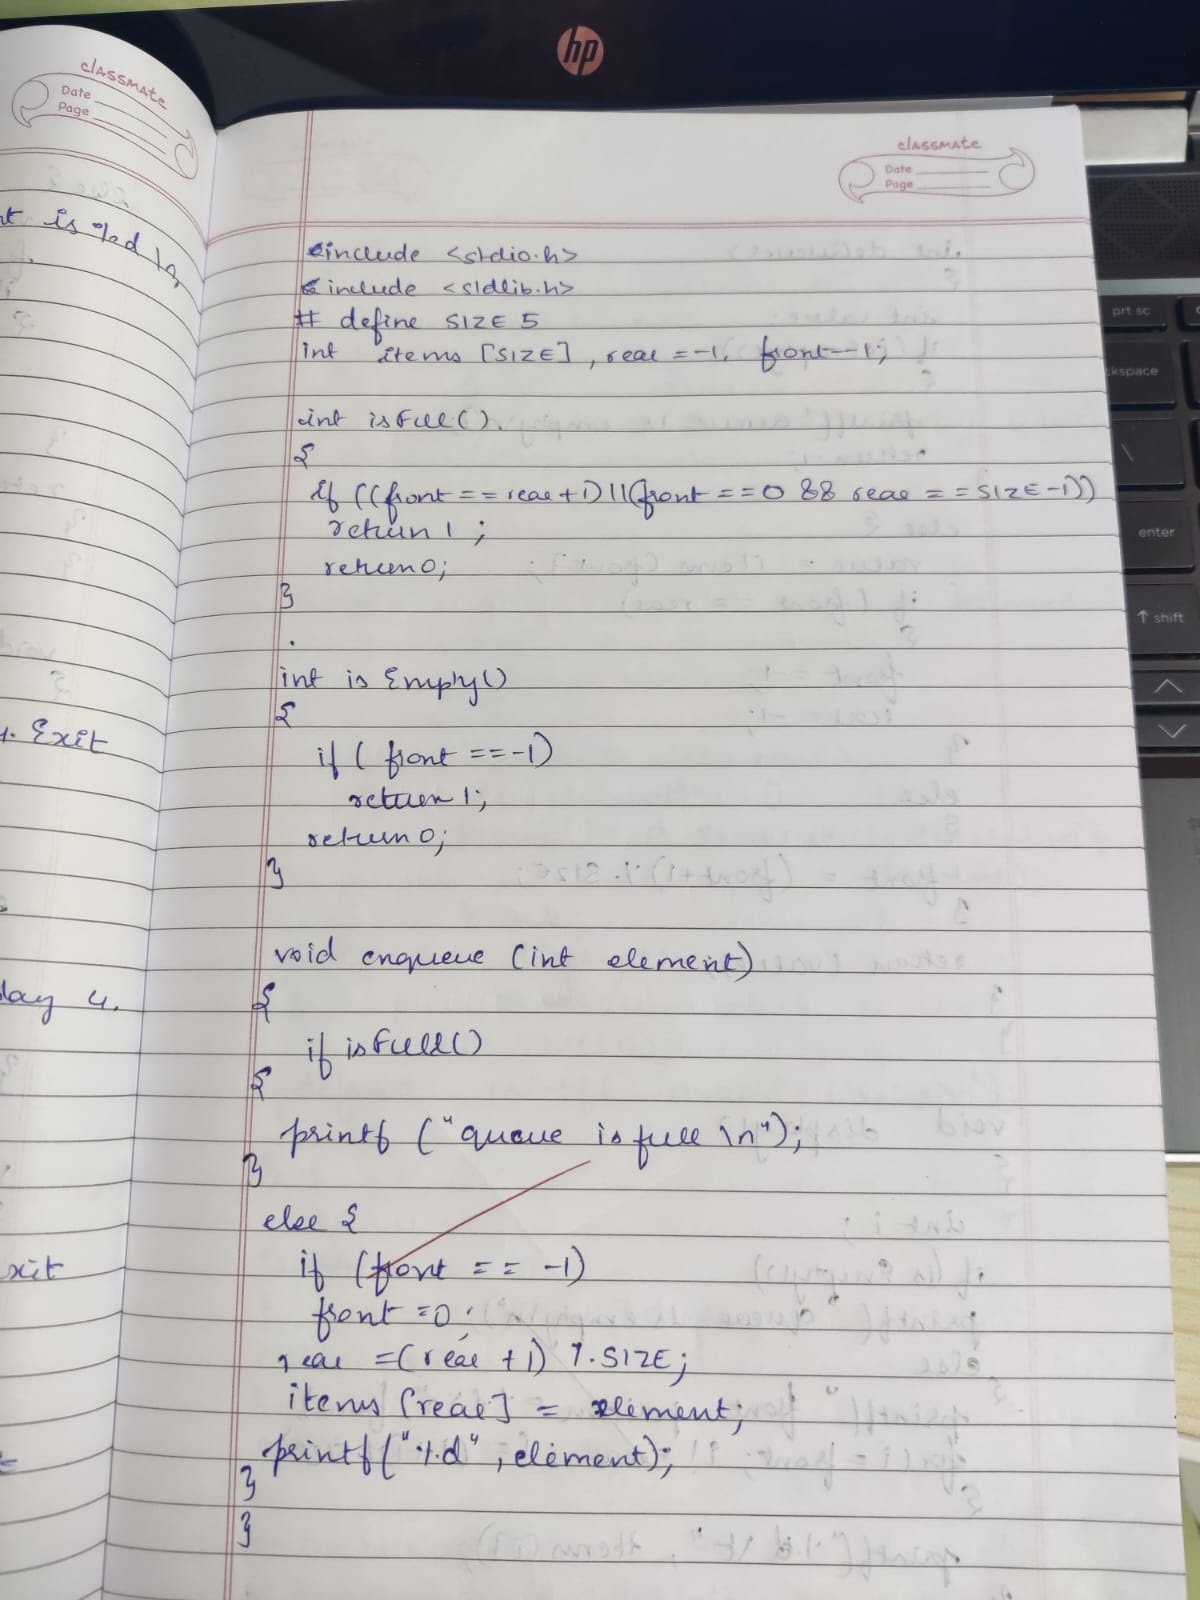 hp
classmate
Date
Page
is %d \n
4. Exit
4.
classmate
Date
Page
include <stdio.h>
include <stdlib.h>
# define SIZE 5
int items [SIZE], rear = -1, front=-1;
int isFull()
{
if ((front == rear+1) || (front == 0 && rear == SIZE-1))
return 1;
return 0;
}
int is Empty()
{
if ( front == -1)
return 1;
return 0;
}
void enqueue (int element)
{
if isFull()
{
printf ("queue is full \n");
}
else {
if (front == -1)
front = 0;
rear = (rear + 1) % SIZE;
items [rear] = element;
printf("%d", element);
}
}
prt sc
enter
↑ shift